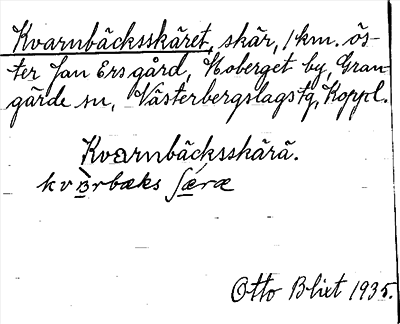 Kvarnbäcksskäret, skär, 1 km. ös-
ter Jan Ersgård, Noberget by, Gran-
gärde sn, Västerbergslags tg, Koppl.
Kvarnbäcksskärä.
Otto Blixt 1935.